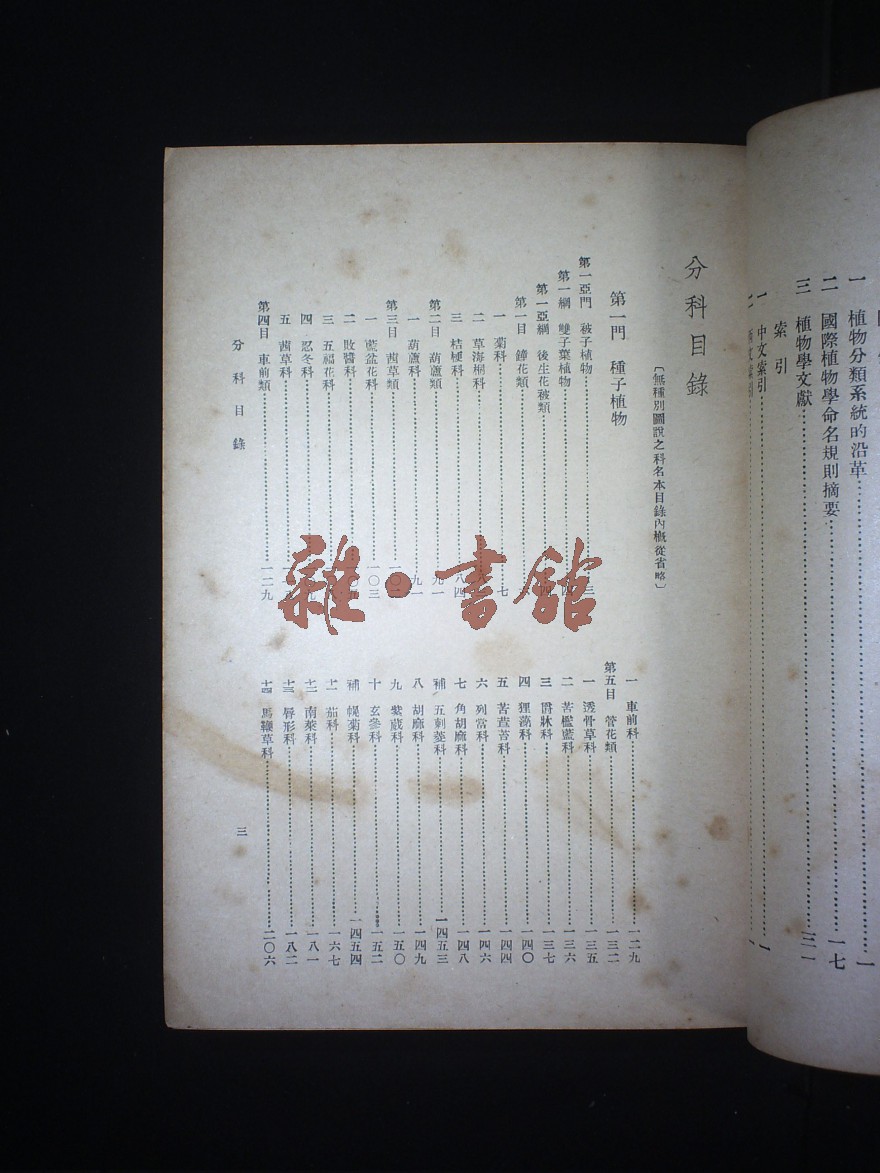 一 植物分類系統的沿革 一
二 國際植物學命名規則摘要 一七
三 植物學文獻 三一
索引
一 中文索引 一
分科目錄
〔無種別圖說之科名本目錄內概從省略〕
第一門 種子植物
第一亞門 被子植物 三
第一綱 雙子葉植物 四
第一亞綱 後生花被類 四
第一目 鐘花類
一 菊科 七
二 草海桐科
三 桔梗科 八四
第二目 葫蘆類 九一
一 葫蘆科 九一
第三目 茜草類 一〇二
一 藍盆花科 一〇三
二 敗醬科
三 五福花科
四 忍冬科
五 茜草科
第四目 車前類 一二九
一 車前科 一二九
第五目 管花類 一三二
一 透骨草科 一三五
二 苦檻藍科 一三六
三 爵牀科 一三七
四 狸藻科 一四〇
五 苦苣苔科 一四四
六 列當科 一四六
七 角胡麻科 一四八
補 五刺菱科 一四五三
八 胡麻科 一四九
九 紫葳科 一五〇
十 玄參科 一五二
補 幌菊科 一四五四
十一 茄科 一六七
十二 南萊科 一八一
十三 唇形科 一八二
十四 馬鞭草科 二〇六
分科目錄
三
雜·書館